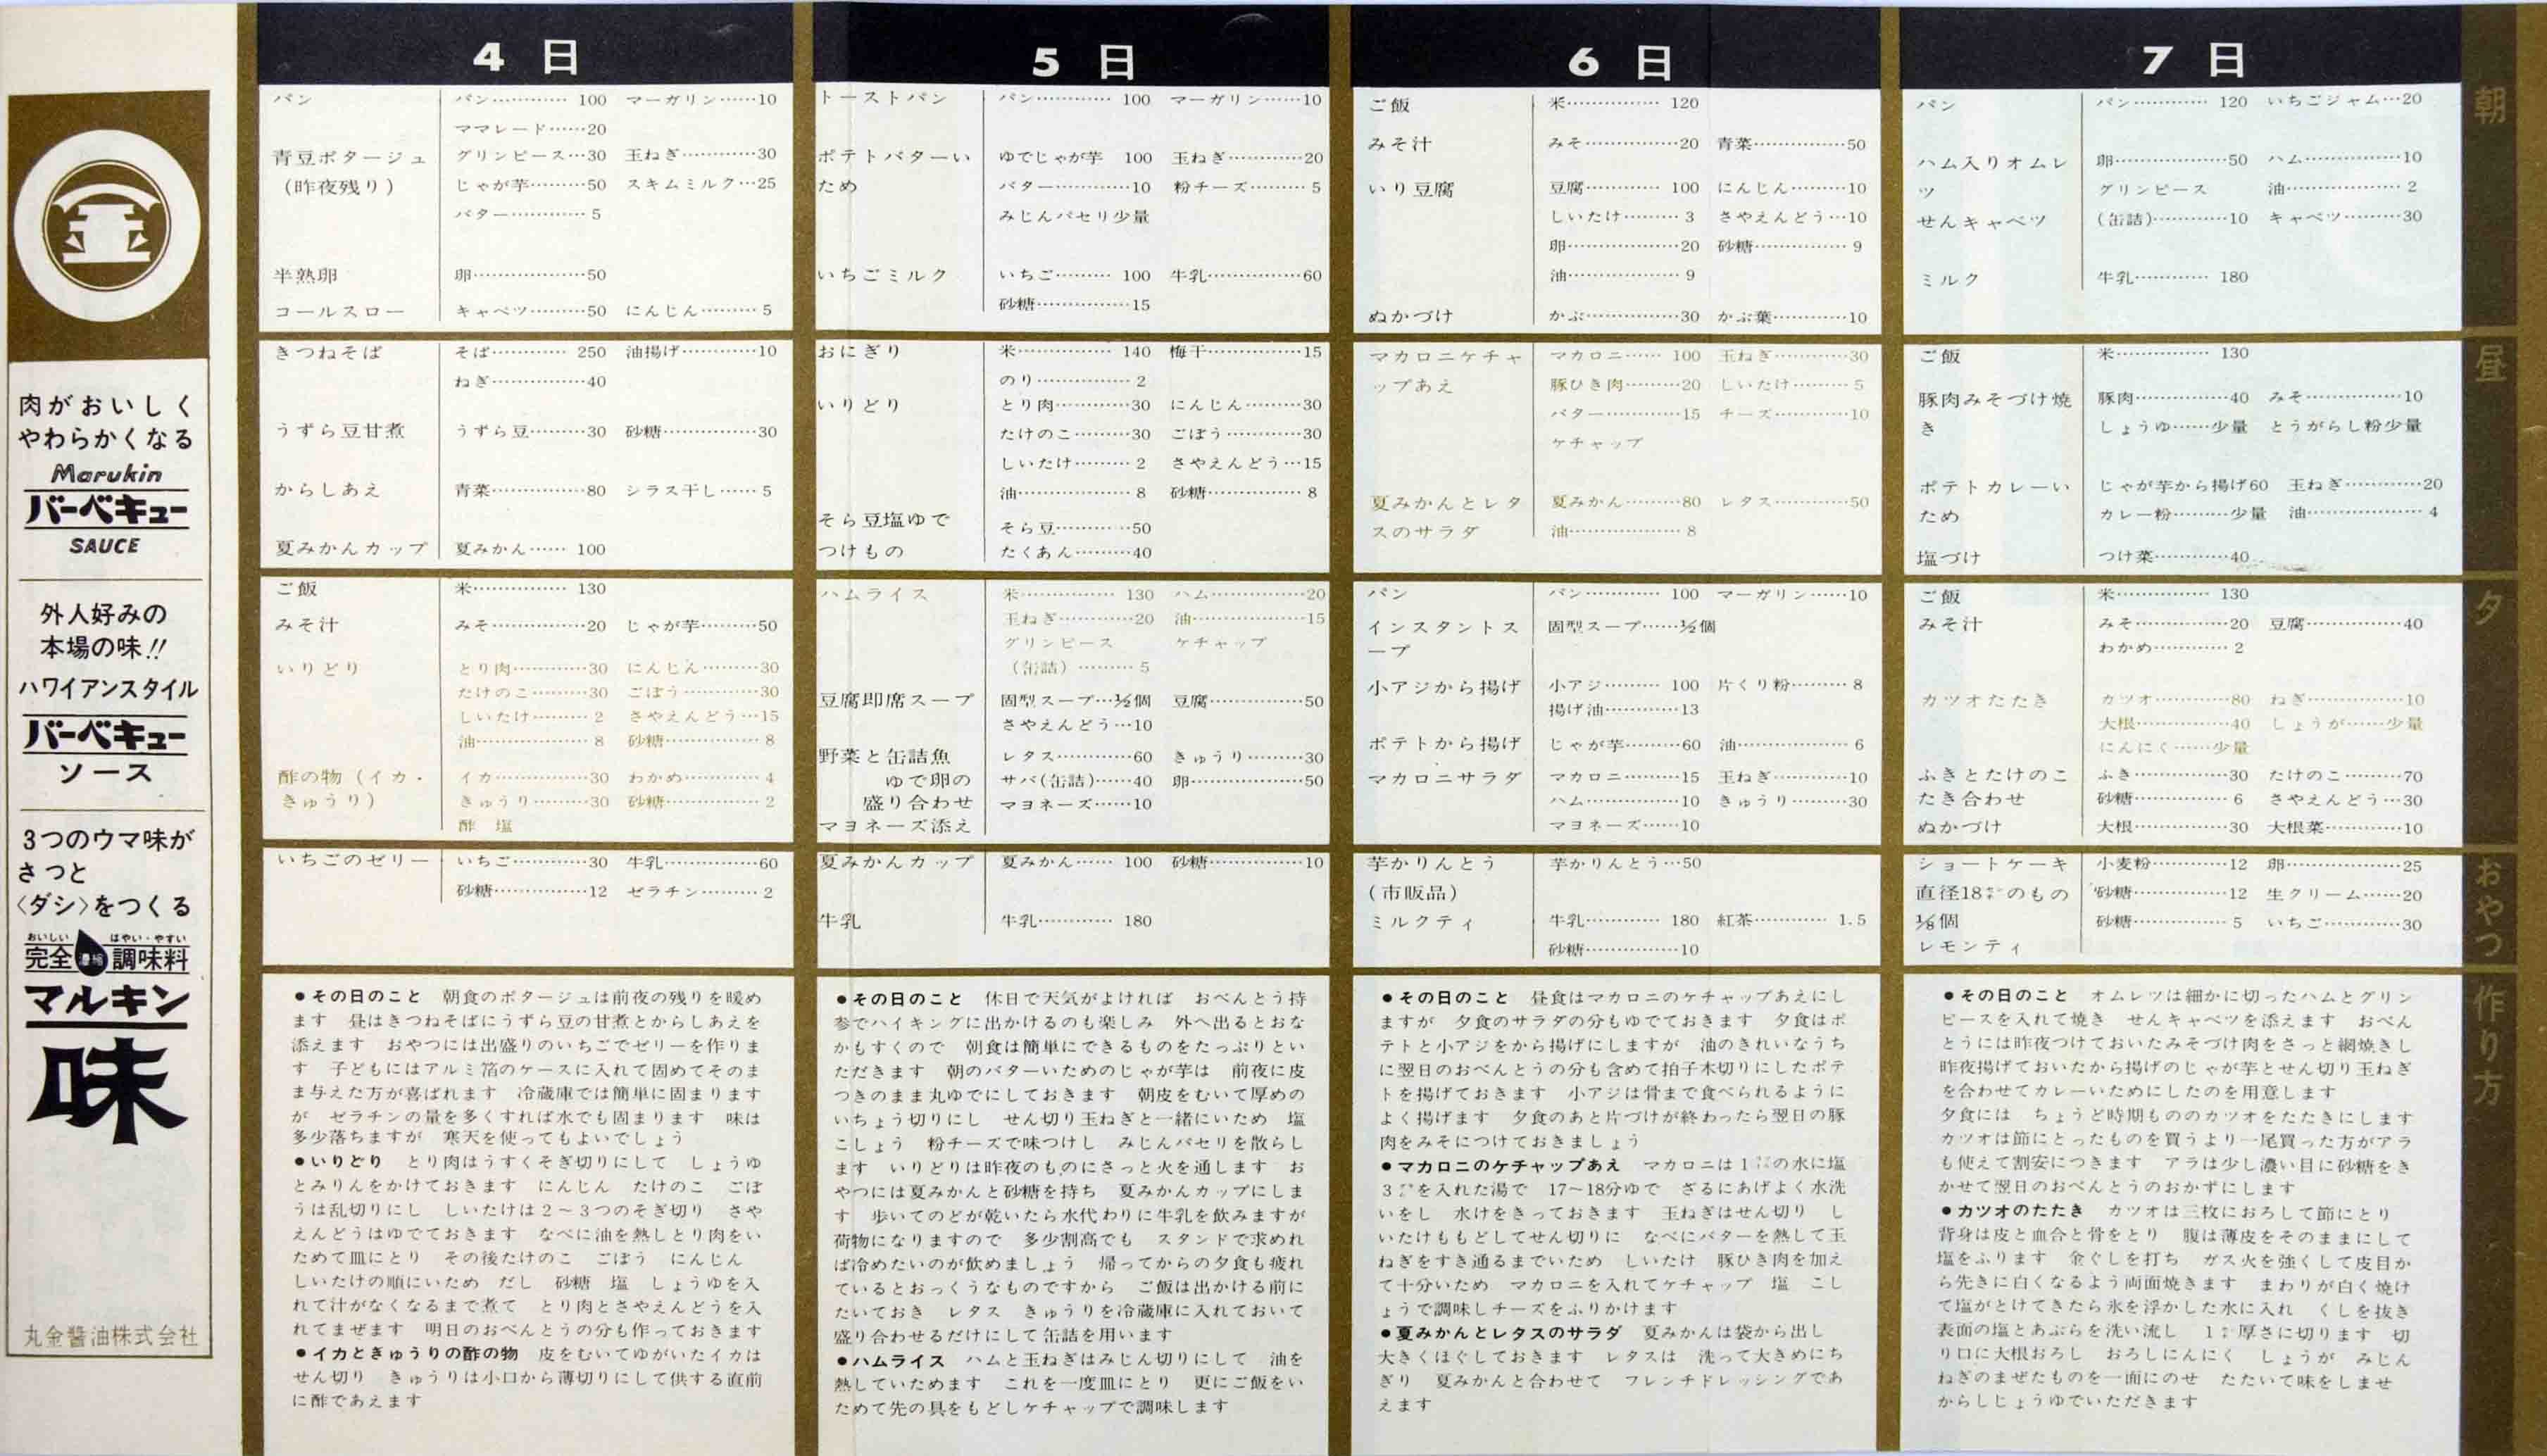 肉がおいしく
やわらかくなる
Marukin
バーベキュー
SAUCE
外人好みの
本場の味!!
ハワイアンスタイル
バーベキュー
ソース
3つのウマ味が
さっと
〈ダシ〉をつくる
おいしい はやい・やすい
完全濃縮調味料
マルキン
味
丸金醬油株式会社
4日
パン パン…………100 マーガリン……10
ママレード……20
青豆ポタージュ グリンピース…30 玉ねぎ…………30
(昨夜残り) じゃが芋………50 スキムミルク…25
バター…………5
半熟卵 卵………………50
コールスロー キャベツ………50 にんじん………5
きつねそば そば…………250 油揚げ…………10
ねぎ……………40
うずら豆甘煮 うずら豆………30 砂糖……………30
からしあえ 青菜……………80 シラス干し……5
夏みかんカップ 夏みかん……100
ご飯 米……………130
みそ汁 みそ……………20 じゃが芋………50
いりどり とり肉…………30 にんじん………30
たけのこ………30 ごぼう…………30
しいたけ………2 さやえんどう…15
油………………8 砂糖……………8
酢の物(イカ・ イカ……………30 わかめ…………4
きゅうり) きゅうり………30 砂糖……………2
酢 塩
いちごのゼリー いちご…………30 牛乳……………60
砂糖……………12 ゼラチン………2
●その日のこと 朝食のポタージュは前夜の残りを暖め
ます 昼はきつねそばにうずら豆の甘煮とからしあえを
添えます おやつには出盛りのいちごでゼリーを作りま
す 子どもにはアルミ箔のケースに入れて固めてそのま
ま与えた方が喜ばれます 冷蔵庫では簡単に固まります
が ゼラチンの量を多くすれば水でも固まります 味は
多少落ちますが 寒天を使ってもよいでしょう
●いりどり とり肉はうすくそぎ切りにして しょうゆ
とみりんをかけておきます にんじん たけのこ ごぼ
うは乱切りにし しいたけは2〜3つのそぎ切り さや
えんどうはゆでておきます なべに油を熱しとり肉をい
ためて皿にとり その後たけのこ ごぼう にんじん
しいたけの順にいため だし 砂糖 塩 しょうゆを入
れて汁がなくなるまで煮て とり肉とさやえんどうを入
れてまぜます 明日のおべんとうの分も作っておきます
●イカときゅうりの酢の物 皮をむいてゆがいたイカは
せん切り きゅうりは小口から薄切りにして供する直前
に酢であえます
5日
トーストパン パン…………100 マーガリン……10
ポテトバターい ゆでじゃが芋 100 玉ねぎ…………20
ため バター…………10 粉チーズ………5
みじんパセリ少量
いちごミルク いちご………100 牛乳……………60
砂糖……………15
おにぎり 米……………140 梅干……………15
のり……………2
いりどり とり肉…………30 にんじん………30
たけのこ………30 ごぼう…………30
しいたけ………2 さやえんどう…15
油………………8 砂糖……………8
そら豆塩ゆで そら豆…………50
つけもの たくあん………40
ハムライス 米……………130 ハム……………20
玉ねぎ…………20 油………………15
グリンピース ケチャップ
(缶詰)………5
豆腐即席スープ 固型スープ…½個 豆腐……………50
さやえんどう…10
野菜と缶詰魚 レタス…………60 きゅうり………30
ゆで卵の サバ(缶詰)……40 卵………………50
盛り合わせ マヨネーズ……10
マヨネーズ添え
夏みかんカップ 夏みかん……100 砂糖……………10
牛乳 牛乳…………180
●その日のこと 休日で天気がよければ おべんとう持
参でハイキングに出かけるのも楽しみ 外へ出るとおな
かもすくので 朝食は簡単にできるものをたっぷりとい
ただきます 朝のバターいためのじゃが芋は 前夜に皮
つきのまま丸ゆでにしておきます 朝皮をむいて厚めの
いちょう切りにし せん切り玉ねぎと一緒にいため 塩
こしょう 粉チーズで味つけし みじんパセリを散らし
ます いりどりは昨夜のものにさっと火を通します お
やつには夏みかんと砂糖を持ち 夏みかんカップにしま
す 歩いてのどが乾いたら水代わりに牛乳を飲みますが
荷物になりますので 多少割高でも スタンドで求めれ
ば冷めたいのが飲めましょう 帰ってからの夕食も疲れ
ているとおっくうなものですから ご飯は出かける前に
たいておき レタス きゅうりを冷蔵庫に入れておいて
盛り合わせるだけにして缶詰を用います
●ハムライス ハムと玉ねぎはみじん切りにして 油を
熱していためます これを一度皿にとり 更にご飯をい
ためて先の具をもどしケチャップで調味します
6日
ご飯 米……………120
みそ汁 みそ……………20 青菜……………50
いり豆腐 豆腐…………100 にんじん………10
しいたけ………3 さやえんどう…10
卵………………20 砂糖……………9
油………………9
ぬかづけ かぶ……………30 かぶ葉…………10
マカロニケチャ マカロニ……100 玉ねぎ…………30
ップあえ 豚ひき肉………20 しいたけ………5
バター…………15 チーズ…………10
ケチャップ
夏みかんとレタ 夏みかん………80 レタス…………50
スのサラダ 油………………8
パン パン…………100 マーガリン……10
インスタントス 固型スープ……½個
ープ
小アジから揚げ 小アジ………100 片くり粉………8
揚げ油…………13
ポテトから揚げ じゃが芋………60 油………………6
マカロニサラダ マカロニ………15 玉ねぎ…………10
ハム……………10 きゅうり………30
マヨネーズ……10
芋かりんとう 芋かりんとう…50
(市販品)
ミルクティ 牛乳…………180 紅茶…………1.5
砂糖……………10
●その日のこと 昼食はマカロニのケチャップあえにし
ますが 夕食のサラダの分もゆでておきます 夕食はポ
テトと小アジをから揚げにしますが 油のきれいなうち
に翌日のおべんとうの分も含めて拍子木切りにしたポテ
トを揚げておきます 小アジは骨まで食べられるように
よく揚げます 夕食のあと片づけが終わったら翌日の豚
肉をみそにつけておきましょう
●マカロニのケチャップあえ マカロニは1㍑の水に塩
3㌘を入れた湯で 17〜18分ゆで ざるにあげよく水洗
いをし 水けをきっておきます 玉ねぎはせん切り し
いたけももどしてせん切りに なべにバターを熱して玉
ねぎをすき通るまでいため しいたけ 豚ひき肉を加え
て十分いため マカロニを入れてケチャップ 塩 こし
ょうで調味しチーズをふりかけます
●夏みかんとレタスのサラダ 夏みかんは袋から出し
大きくほぐしておきます レタスは 洗って大きめにち
ぎり 夏みかんと合わせて フレンチドレッシングであ
えます
7日
パン パン…………120 いちごジャム…20
ハム入りオムレ 卵………………50 ハム……………10
ツ グリンピース 油………………2
せんキャベツ (缶詰)…………10 キャベツ………30
ミルク 牛乳…………180
ご飯 米……………130
豚肉みそづけ焼 豚肉……………40 みそ……………10
き しょうゆ……少量 とうがらし粉少量
ポテトカレーい じゃが芋から揚げ60 玉ねぎ…………20
ため カレー粉………少量 油………………4
塩づけ つけ菜…………40
ご飯 米……………130
みそ汁 みそ……………20 豆腐……………40
わかめ…………2
カツオたたき カツオ…………80 ねぎ……………10
大根……………40 しょうが……少量
にんにく……少量
ふきとたけのこ ふき……………30 たけのこ………70
たき合わせ 砂糖……………6 さやえんどう…30
ぬかづけ 大根……………30 大根菜…………10
ショートケーキ 小麦粉…………12 卵………………25
直径18㌢のもの 砂糖……………12 生クリーム……20
⅛個 砂糖……………5 いちご…………30
レモンティ
●その日のこと オムレツは細かに切ったハムとグリン
ピースを入れて焼き せんキャベツを添えます おべん
とうには昨夜つけておいたみそづけ肉をさっと網焼きし
昨夜揚げておいたから揚げのじゃが芋とせん切り玉ねぎ
を合わせてカレーいためにしたのを用意します
夕食には ちょうど時期もののカツオをたたきにします
カツオは節にとったものを買うより一尾買った方がアラ
も使えて割安につきます アラは少し濃い目に砂糖をき
かせて翌日のおべんとうのおかずにします
●カツオのたたき カツオは三枚におろして節にとり
背身は皮と血合と骨をとり 腹は薄皮をそのままにして
塩をふります 金ぐしを打ち ガス火を強くして皮目か
ら先きに白くなるよう両面焼きます まわりが白く焼け
て塩がとけてきたら氷を浮かした水に入れ くしを抜き
表面の塩とあぶらを洗い流し 1㌢厚さに切ります 切
り口に大根おろし おろしにんにく しょうが みじん
ねぎのまぜたものを一面にのせ たたいて味をしませ
からしじょうゆでいただきます
朝
昼
夕
おやつ
作り方